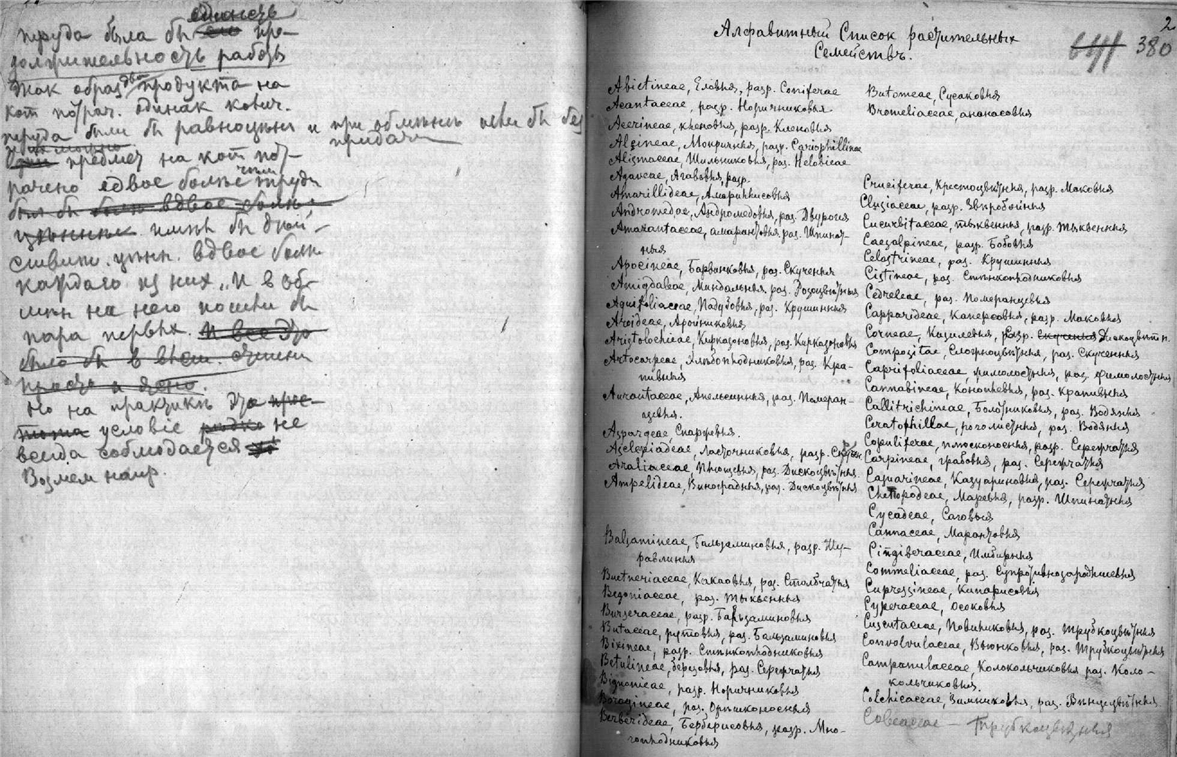 единств
труда была бы ею про-
должительность работы
Так образ. два продукта на
кот потрач. одинак колич.
труда были бы равноценны и при обмене шли бы без
придачи
предмет на кот пот-
рачено вдвое больше труда
был бы был вдвое больше
имел бы
вдвое больш
каждаго из них. И в об-
мен на него пошли бы
пара первых. И все это
было бы в
просто и ясно.
Но на практике это прос-
тота условіе редко не
всегда соблюдается
Возмем напр.
Алфавитный Список растительных
Семействъ.
2
380
Abietineae, Еловыя, разр. Coniferae
Acantaceae, разр. Норичниковыя.
Acerineae, кленовыя, разр. Кленовыя
Alsineae, Мокричныя, разр. Cariophillinae
Alismaceae, Шильниковыя, раз. Helobieae
Agaveae, Агавовыя, разр.
Amarillideae, Амариллисовыя
Andromedae, Андромедовыя, раз. Двурогія
Amarantaceae, амарантовыя, раз. Шпинат-
ныя
Apocineae, Барвинковыя, раз. Скученныя
Amigdaleae, Миндальныя, раз. Розоцветныя
Aquifoliaceae, Падубовыя, раз. Крушинныя
Aroideae, Аройниковыя
Aristolochieae, Кирказоновыя, раз. Кирказоновыя
Artocarpeae, Хлебоплодниковыя, раз. Кра-
пивныя
Aurantiaceae, Апельсинныя, раз. Померан-
цевыя.
Asparageae Спаржевыя.
Asclepiadeae, Ласточниковыя, разр. Скучен
Araliaceae, Плющевыя, раз. Дискоцветныя
Ampelideae, Виноградныя, раз. Дискоцветныя
Balsamineae, Бальзаминовыя, разр. Жу-
равлиныя
Buetneriaceae, Какаовыя, раз. Столбчатыя
Begoniaceae, раз. Тыквенныя
Burseraceae, разр. Бальзаминовыя
Rutaceae, рутовыя, раз. Бальзаминовыя
Bixineae, разр. Стенкоплодниковыя
Betulineae, березовыя, раз. Сережчатыя
Bignonieae, разр. Норичниковыя
Boragineae, раз. Орешконосныя
Berberideae, Берберисовыя, разр. Мно-
гоплодниковыя
Butomeae, Сусаковыя
Bromeliaceae, ананасовыя
Cruciferae, Крестоцветныя, разр. Маковыя
Clusiaceae, разр. Зверобойныя
Cucurbitaceae, тыквенныя, разр. Тыквенныя
Caesalpineae, разр. Бобовыя
Celastrineae, раз. Крушинныя
Cistineae, раз Стенкоплодниковыя
Cedreleae, раз. Померанцевыя
Capparideae, Каперсовыя, разр. Маковыя
Corneae, Кизилевыя, разр. скученныя Дискоцветн.
Compositae, Сложноцветныя, раз. Скученныя
Caprifoliaceae, жимолостныя, раз. жимолостныя
Cannabineae, Конопляныя, раз. Крапивныя
Callitrichineae, Болотниковыя, раз. Водяныя
Ceratophilleae, роголистныя, раз. Водяныя
Cupuliferae, плюсконосныя, разр. Сережчатыя
Carpineae, грабовыя, раз. Сережчатыя
Casuarineae, Казуариновыя, раз. Сережчатыя
Chenopodeae, Маревыя, разр. Шпинатныя
Cycadeae, Саговыя
Cannaceae, Марантовыя
Cingiberaceae, Имбирныя
Commeliaceae, раз. Супротивнозародышевыя
Cupressineae, Кипарисовыя
Cyperaceae, Осоковыя
Cuscutaceae, Повиликовыя, раз. Трубкоцветныя
Convolvulaceae, Вьюнковыя, раз. Трубкоцветныя
Campanulaceae, Колокольчиковыя раз. Коло-
кольчиковыя.
Colchicaceae, Зимниковыя, раз. Венцецветныя
Cobeaceae – Трубкоцветныя